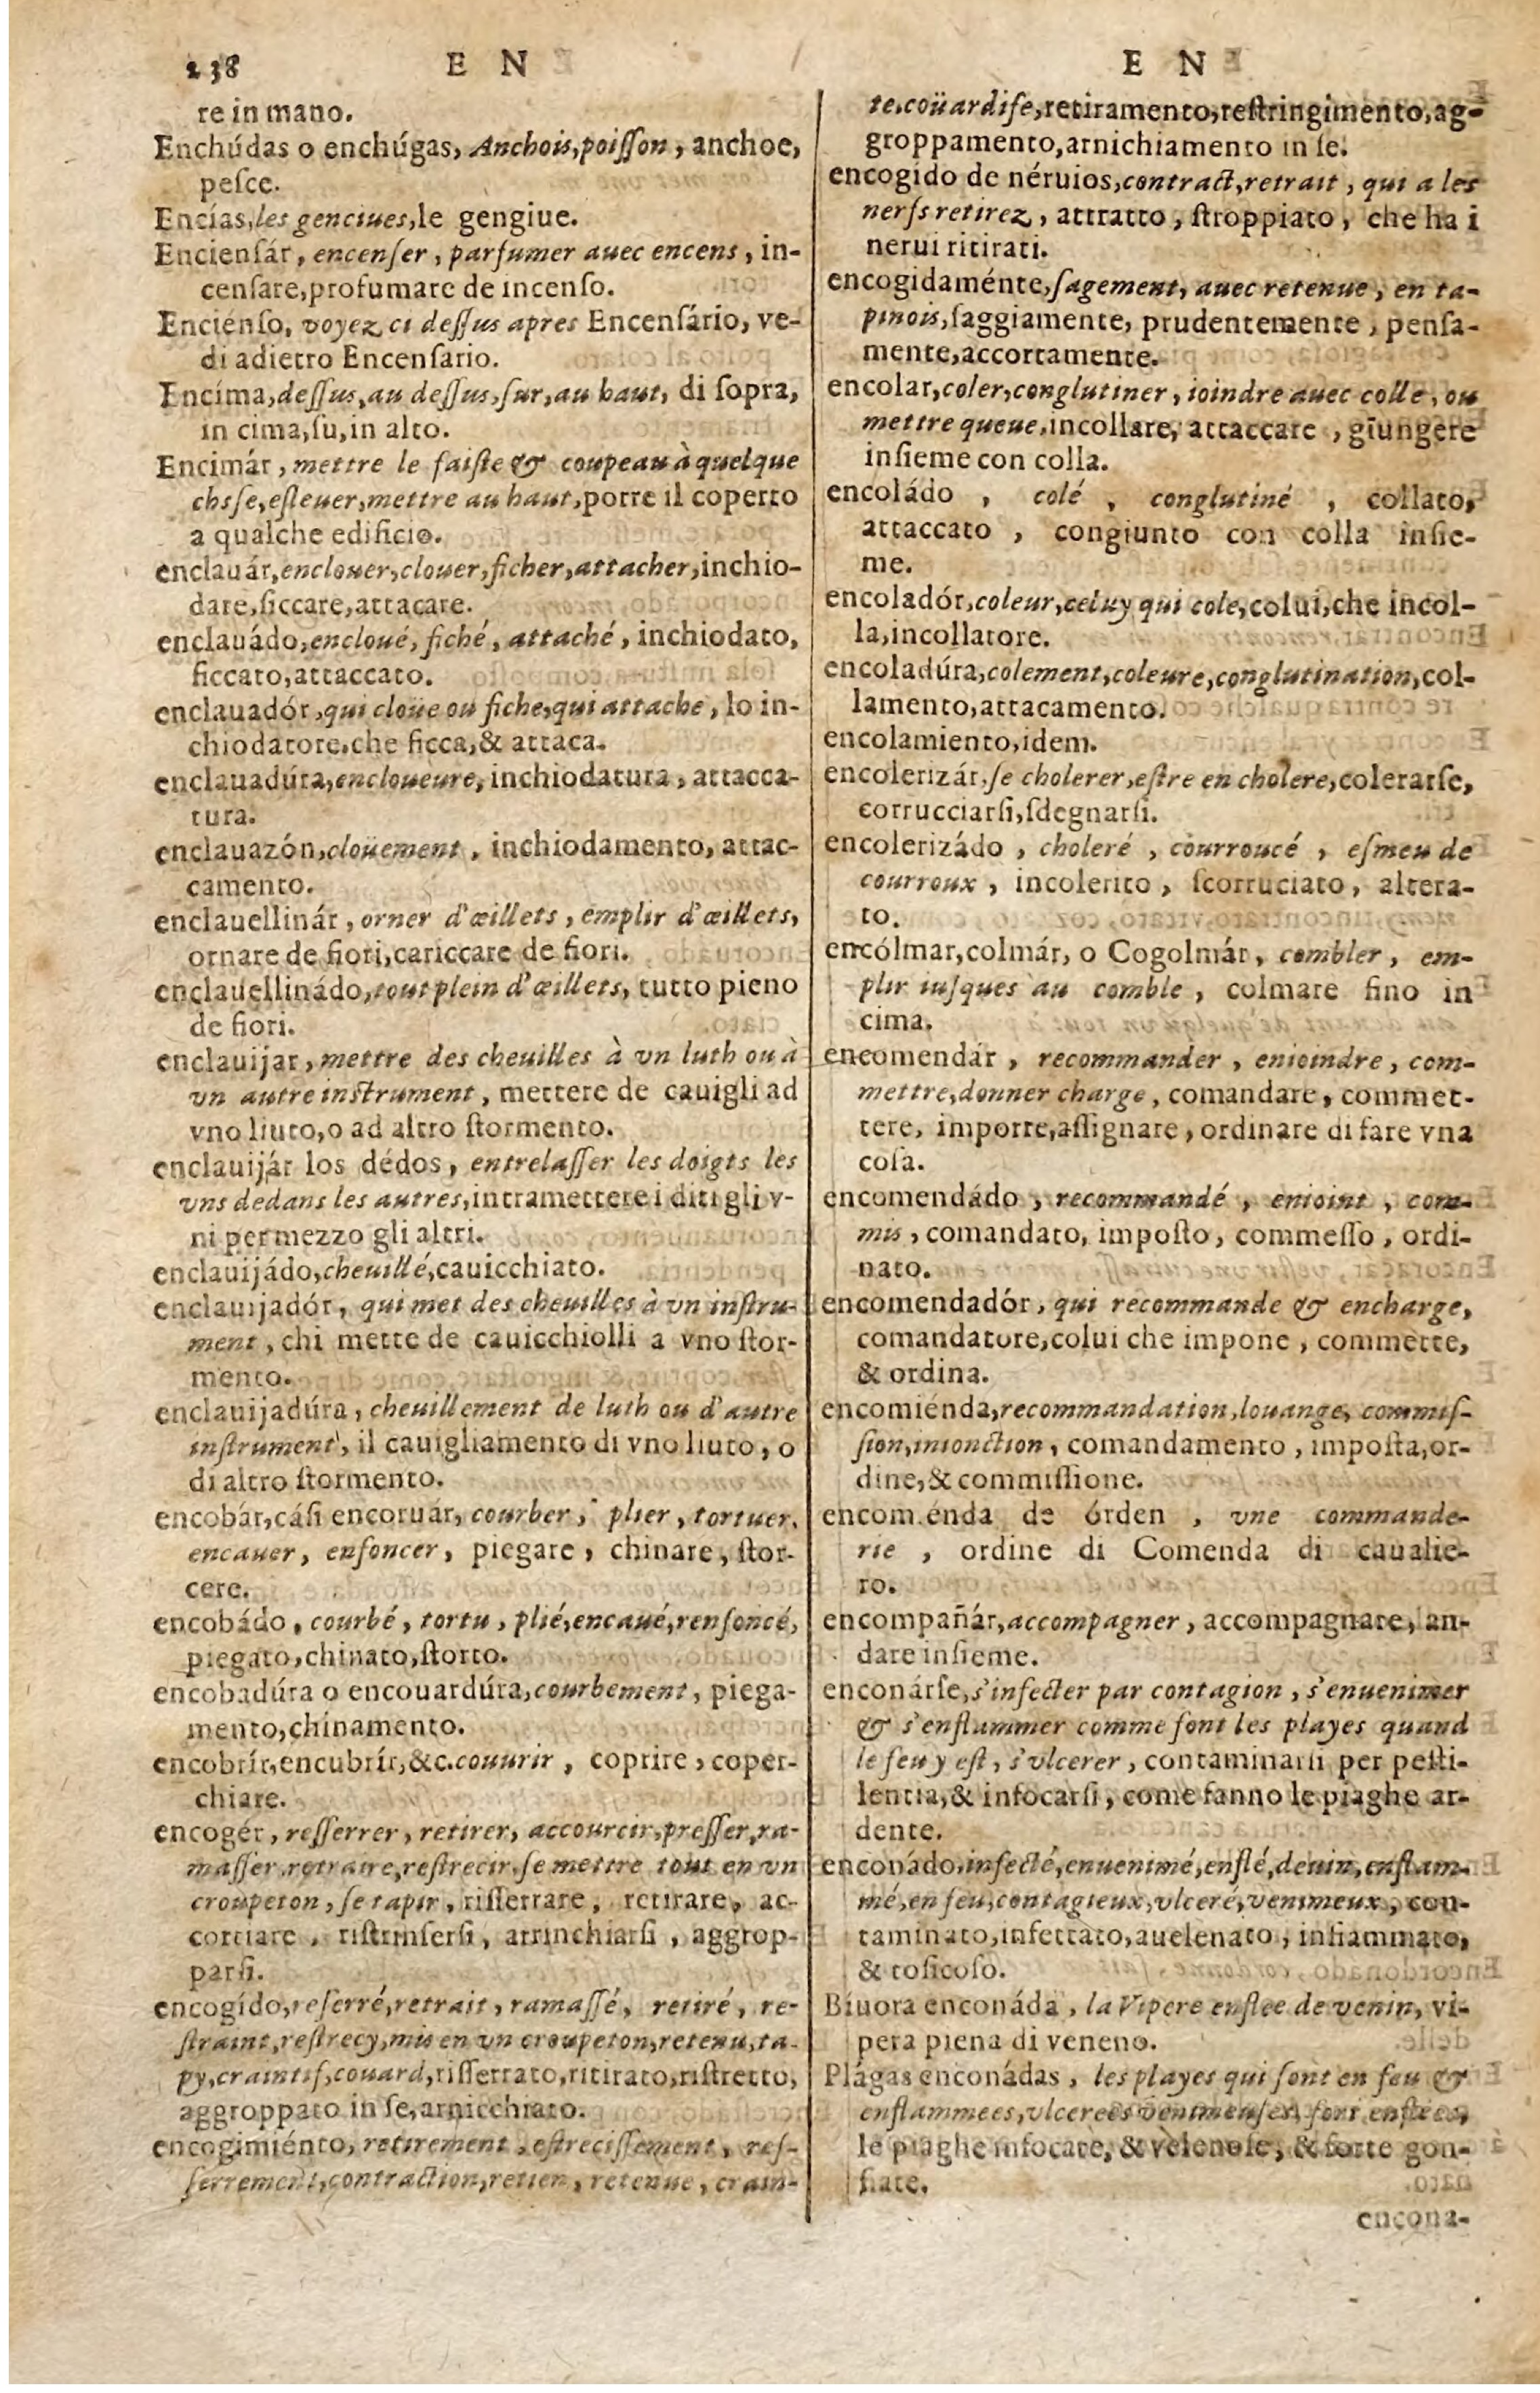 238 E N E N
re in mano.
Enchúdas o enchúgas, Anchois, poiſſon, anchoe,
peſce.
Encías, les genciues, le gengiue.
Encienſár, encenſer, parfumer auec encens, in-
cenſare, profumare de incenſo.
Encienſo, voyez ci deſſus apres Encenſário, ve-
di adietro Encenſario.
Encíma, deſſus, au deſſus, ſur, au haut, di ſopra,
in cima, ſu, in alto.
Encimár, mettre le faiſte & coupeau à quelque
chsſe, eſleuer, mettre au haut, porre il coperto
a qualche edificio.
enclauár, enclouer, clouer, ficher, attacher, inchio-
dare, ficcare, attacare.
enclauádo, encloué, fiché, attaché, inchiodato,
ficcato, attaccato.
enclauadór, qui cloüe ou fiche, qui attache, lo in-
chiodatore, che ficca, & attaca.
enclauadúra, encloueure, inchiodatura, attacca-
tura.
enclauazón, cloüement, inchiodamento, attac-
camento.
enclauellinár, orner d'œillets, emplir d'œillets,
ornare de fiori, cariccare de fiori.
enclauellinádo, tout plein d'œillets, tutto pieno
de fiori.
enclauijar, mettre des cheuilles à vn luth ou à
vn autre inſtrument, mettere de cauigli ad
vno liuto, o ad altro ſtormento.
enclauijár los dédos, entrelaſſer les doigts les
vns dedans les autres, intramettere i diti gli v-
ni per mezzo gli altri.
enclauijádo, cheuillé, cauicchiato.
enclauijadór, qui met des cheuilles à vn inſtru-
ment, chi mette de cauicchiolli a vno ſtor-
mento.
enclauijadúra, cheuillement de luth ou d'autre
inſtrument, il cauigliamento di vno liuto, o
di altro ſtormento.
encobár, cáſi encoruár, courber, plier, tortuer,
encauer, enfoncer, piegare, chinare, ſtor-
cere.
encobádo, courbé, tortu, plié, encaué, renfoncé,
piegato, chinato, ſtorto.
encobadúra o encouardúra, courbement, piega-
mento, chinamento.
encobrír, encubrír, &c. couurir, coprire, coper-
chiare.
encogér, reſſerrer, retirer, accourcir, preſſer, ra-
maſſer, retraire, reſtrecir, ſe mettre tout en vn
croupeton, ſe tapir, riſſerrare, retirare, ac-
cortiare, riſtrinſerſi, arrinchiarſi, aggrop-
parſi.
encogído, reſerré, retrait, ramaſſé, retiré, re-
ſtraint, reſtrecy, mis en vn croupeton, retenu, ta-
py, craintif, couard, riſſerrato, ritirato, riſtretto,
aggroppato in ſe, arnicchiato.
encogimiénto, retirement, eſtreciſſement, reſ-
ſerrement, contraction, retien, retenue, crain-
te, coüardiſe, retiramento, reſtringimento, ag-
groppamento, arnichiamento in ſe.
encogido de néruios, contract, retrait, qui a les
nerfs retirez, attratto, ſtroppiato, che ha i
nerui ritirati.
encogidaménte, ſagement, auec retenue, en ta-
pinois, ſaggiamente, prudentemente, penſa-
mente, accortamente.
encolar, coler, conglutiner, ioindre auec colle, ou
mettre queue, incollare, attaccare, giungere
inſieme con colla.
encoládo, colé, conglutiné, collato,
attaccato, congiunto con colla inſie-
me.
encoladór, coleur, celuy qui cole, colui, che incol-
la, incollatore.
encoladúra, colement, coleure, conglutination, col-
lamento, attacamento.
encolamiento, idem.
encolerizár, ſe cholerer, eſtre en cholere, colerarſe,
corrucciarſi, ſdegnarſi.
encolerizádo, choleré, courroucé, eſmeu de
courroux, incolerito, ſcorruciato, altera-
to.
encólmar, colmár, o Cogolmár, combler, em-
plir iuſques au comble, colmare fino in
cima.
encomendár, recommander, enioindre, com-
mettre, donner charge, comandare, commet-
tere, importe, aſſignare, ordinare di fare vna
coſa.
encomendádo, recommandé, enioint, com-
mis, comandato, impoſto, commeſſo, ordi-
nato.
encomendadór, qui recommande & encharge,
comandatore, colui che impone, commette,
& ordina.
encomiénda, recommandation, louange, commiſ-
ſion, inionction, comandamento, impoſta, or-
dine, & commiſſione.
encomiénda de órden, vne commande-
rie, ordine di Comenda di caualie-
ro.
encompañár, accompagner, accompagnare, an-
dare inſieme.
enconárſe, s'infecter par contagion, s'enuenimer
& s'enflammer comme font les playes quand
le feu y eſt, s'vlcerer, contaminarſi per peſti-
lentia, & infocarſi, come fanno le piaghe ar-
dente.
enconádo, infecté, enuenimé, enflé, de uin, enflam-
mé, en feu, contagieux, vlceré, venimeux, con-
taminato, infettato, auelenato, infiammato,
& toſicoſo.
Bíuora enconáda, la Vipere enflee de venin, vi-
pera piena di veneno.
Plágas enconádas, les playes qui ſont en feu &
enflammees, vlcerees venimeuſes, fort enflees,
le piaghe infocate, & velenoſe, & forte gon-
fiate.
encona-